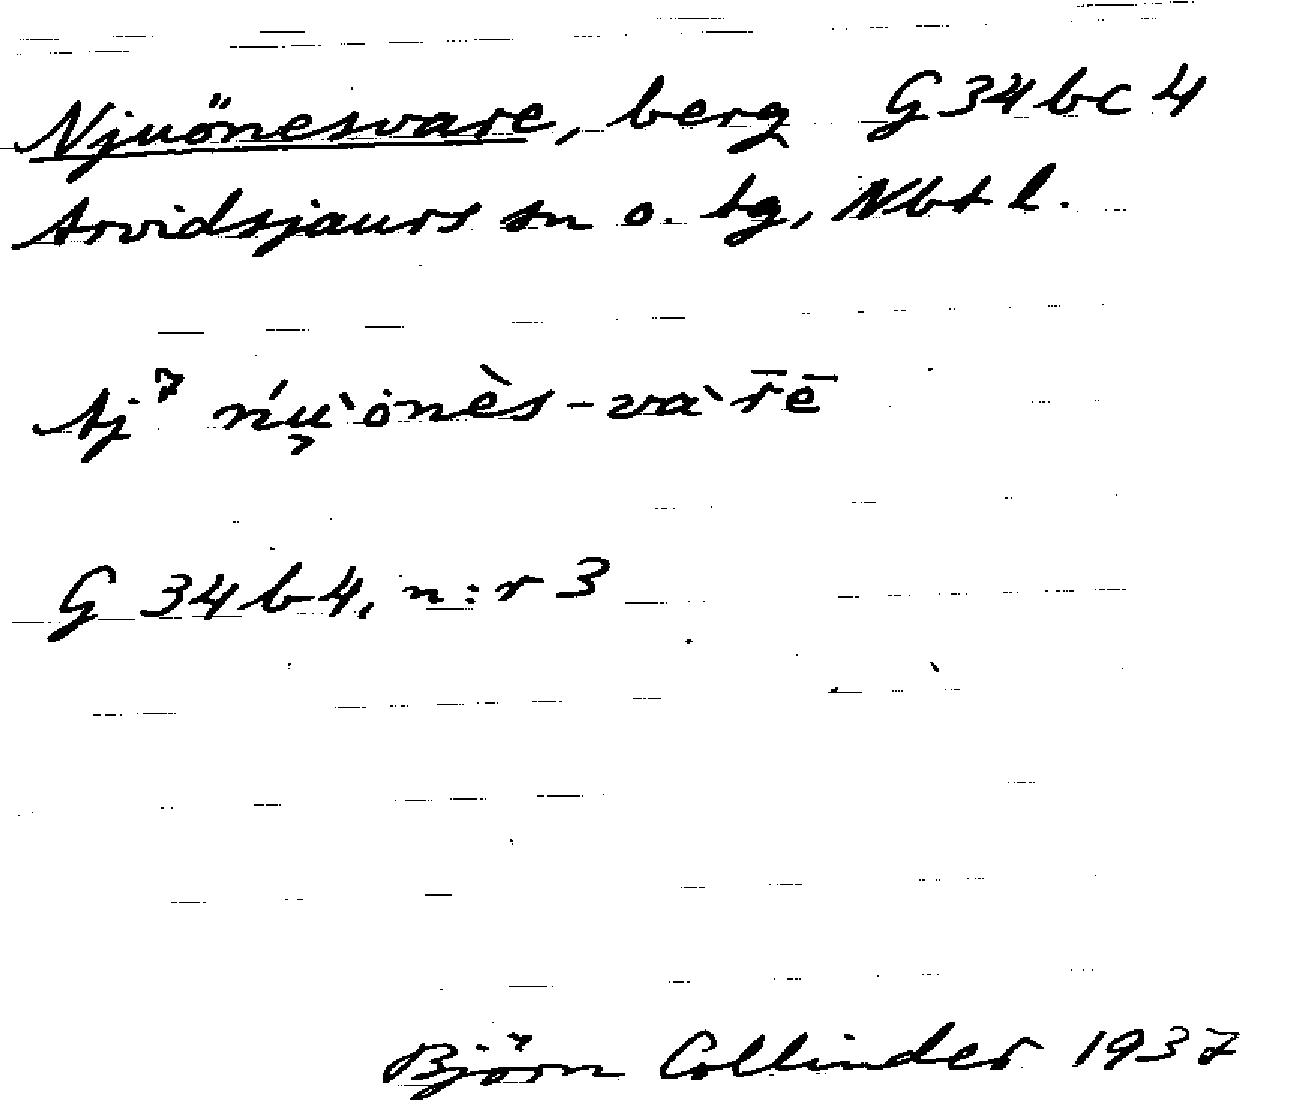 Njuönesvare, berg G34bc4
Arvidsjaurs sn o. tg, Nbt l.
Aj⁷ ńu̯ònès-vàr̄ē
G 34 b 4, n:r 3
Björn Collinder 1937